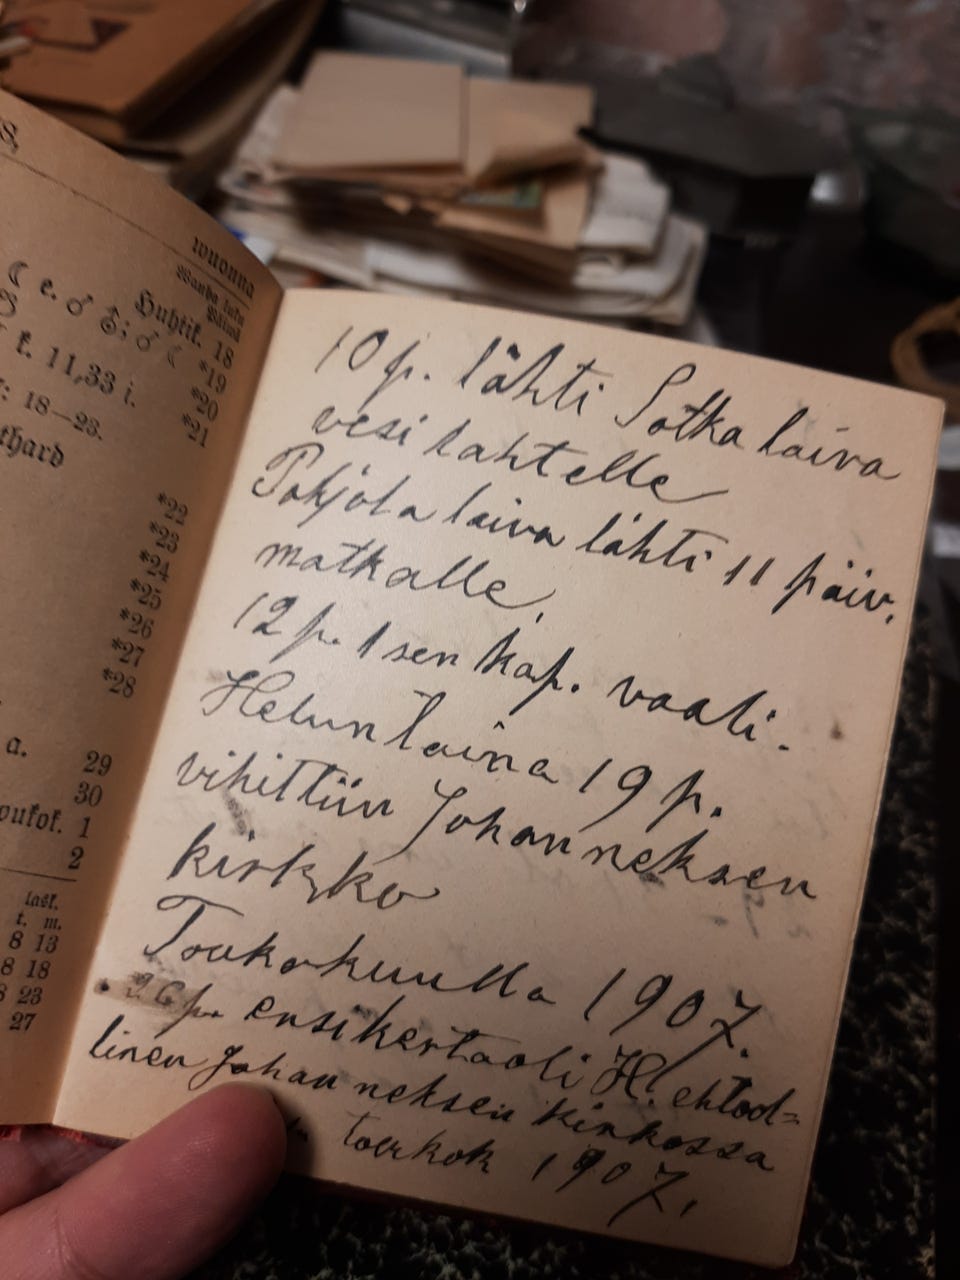 wuonna
Wanha luku
Päiwä
Huhtik. 18
*19
*20
*21
☾ e. ♂
k. 11,33 i.
: 18—23.
thard
*22
*23
*24
*25
*26
*27
*28
a. 29
30
oukok. 1
2
lask.
t. m.
8 13
8 18
8 23
27
10 p. lähti Sotka laiva
vesi lahtelle
Pohjola laiva lähti 11 päiv.
matkalle.
12 p. 1 sen kap. vaali.
Helunlaina 19 p.
vihittiin Johanneksen
kirkko
Toukokuulla 1907.
26 p. ensikertaoli H. ehtool=
linen Johanneksen kirkossa
toukok 1907.